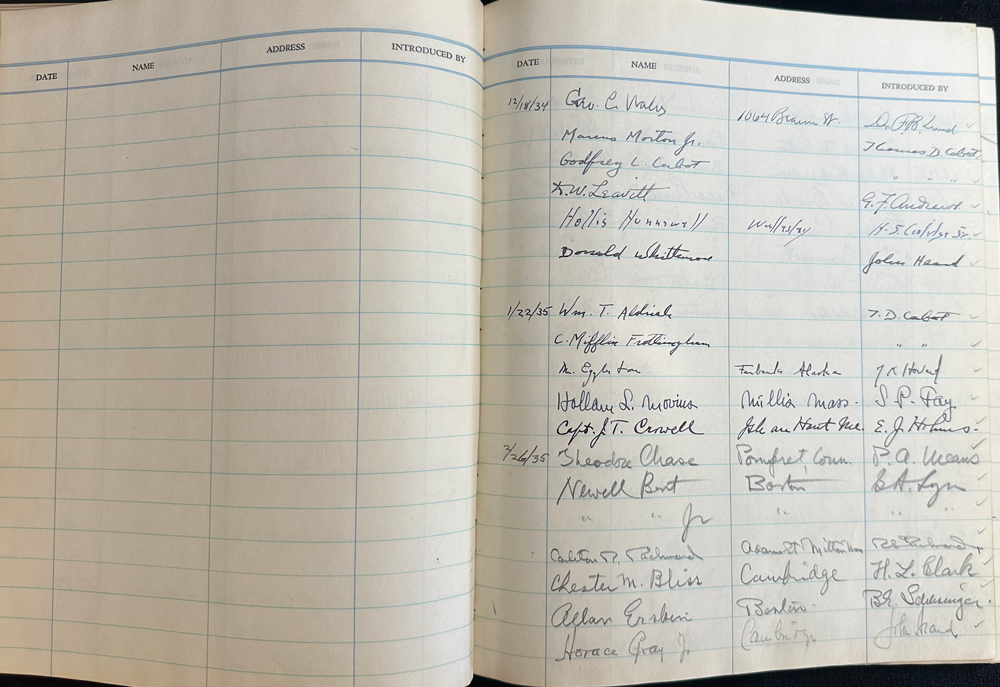 DATE NAME ADDRESS INTRODUCED BY
DATE NAME ADDRESS INTRODUCED BY
12/18/34 Geo. C. Wales 1064 Beacon St. Dr. F. B. Lund
Marcus Morton Jr. Thomas D. Cabot
Godfrey L. Cabot " " "
D. W. Leavitt G. F. Andrews
Hollis Hunnewell Wellesley H. S.
Donald Whittemore John Heard
1/22/35 Wm. T. Aldrich T. D. Cabot
C. Mifflin Frothingham " "
M. Eggleston Fairbanks Alaska
Hallam L. Movius Millis Mass. S. P. Fay
Capt. J. T. Crowell Isle au Haut Me. E. J. Holmes
2/26/35 Theodore Chase Pomfret, Conn. P. A. Means
Newell Bent Boston
" " Jr " " "
Carlton P. Richmond Adams St Milton
Chester M. Bliss Cambridge H. L. Clark
Allan Erskin Boston.
Horace Gray Jr Cambridge John Heard